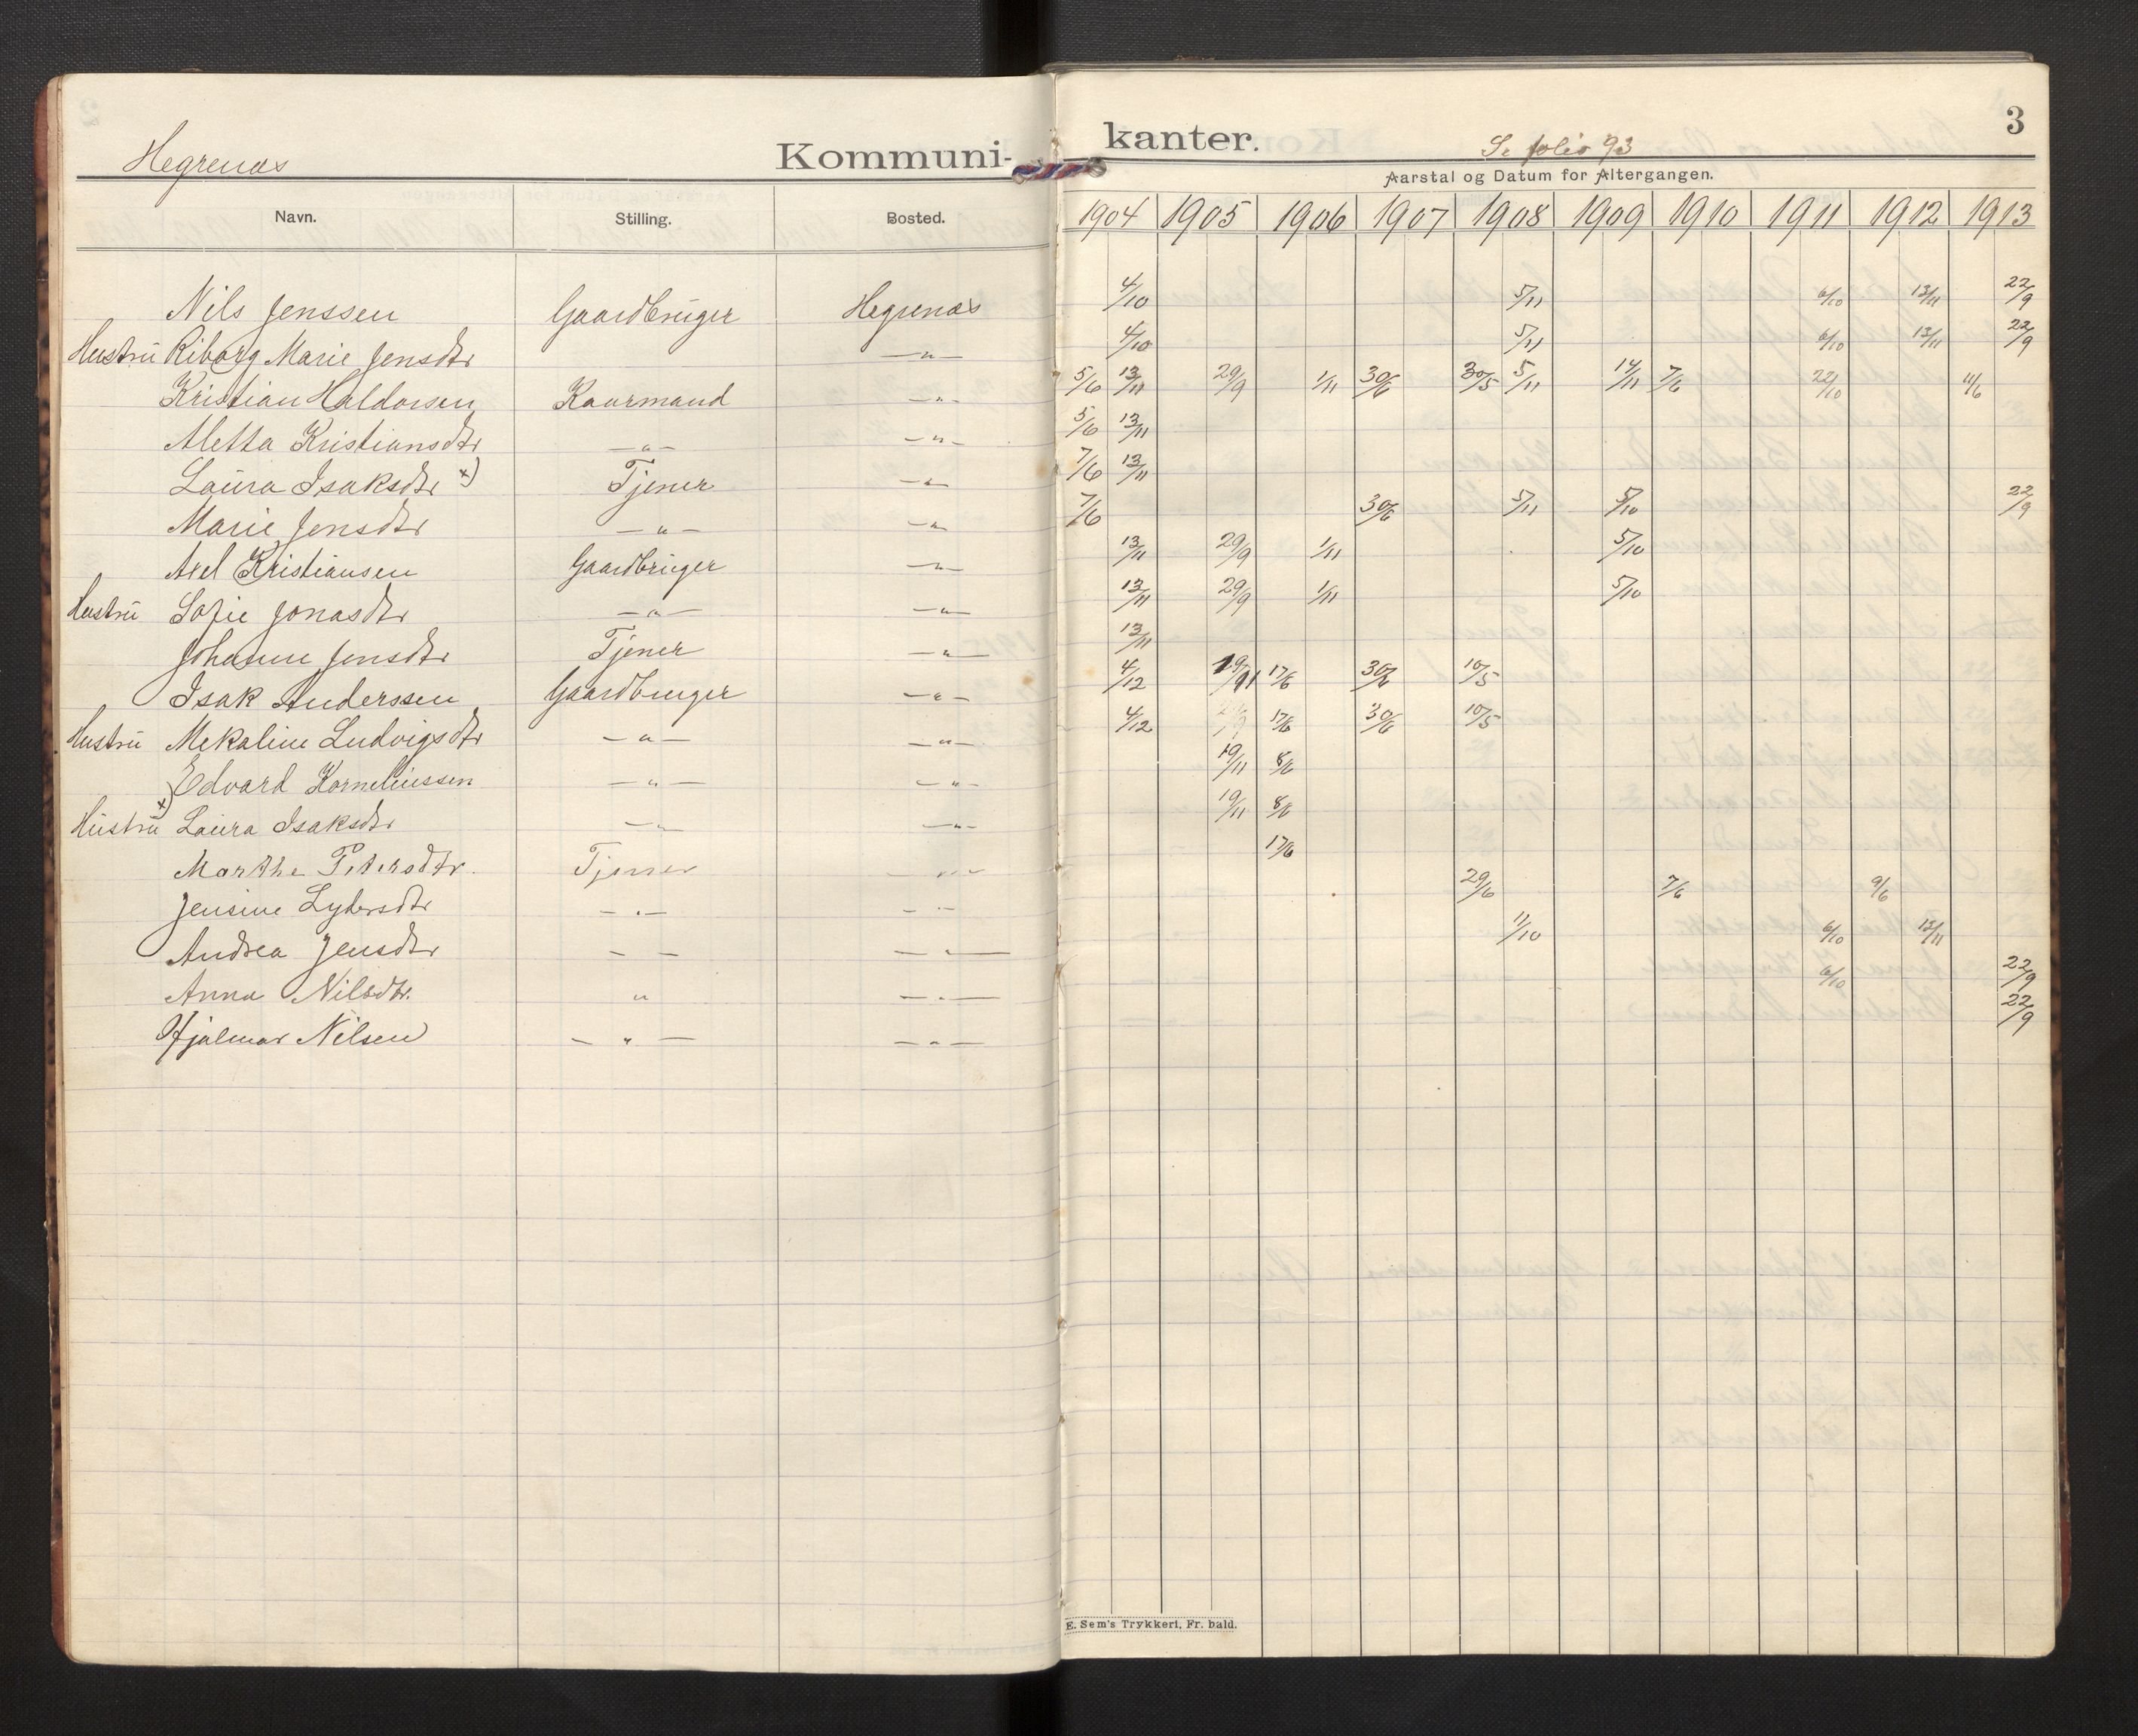 3
Hegrenæs Kommuni- kanter. Se folio 93
Aarstal og Datum for Altergangen.
Navn. Stilling. Bosted. 1904 1905 1906 1907 1908 1909 1910 1911 1912 1913
Nils Jenssen Gaardbruger Hegrenæs 4/10 5/11 6/10 13/11 22/9
Hustru Riborg Marie Jensdtr —"— 4/10 5/11 6/10 13/11 22/9
Kristian Haldorsen Kaarmand —"— 5/6 13/11 29/9 1/11 30/6 30/5 5/11 14/11 7/6 22/10 11/6
Aletta Kristiansdtr —"— —"— 5/6 13/11
Laura Isaksdtr x) Tjener —"— 7/6 13/11
Marie Jensdtr —"— —"— 7/6 30/6 5/11 5/10 22/9
Axel Kristiansen Gaardbruger —"— 13/11 29/9 1/11 5/10
Hustru Sofie Jonasdtr —"— —"— 13/11 29/9 1/11 5/10
Johanne Jensdtr Tjener —"— 13/11
Isak Anderssen Gaardbruger —"— 4/12 17/6 30/6 10/5
Hustru Mekaline Ludvigsdtr —"— —"— 4/12 17/6 30/6 10/5
Edvard Korneliussen —"— —"— 19/11 8/6
Hustru x) Laura Isaksdtr —"— —"— 19/11 8/6
Marthe Petersdtr. Tjener —"— 17/6
Jensine Lydersdtr —"— —"— 29/6 7/6 9/6
Andrea Jensdtr — — —"— 11/10 6/10 13/11
Anna Nilsdtr. " —"— 6/10 22/9
Hjalmar Nilsen —"— —"— 22/9
E. Sem's Trykkeri, Fr.hald.